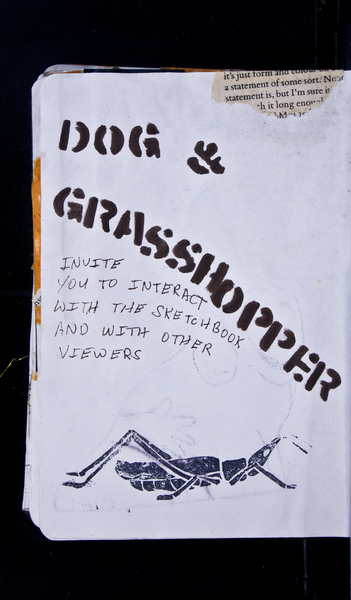 it's just form and colour
a statement of some sort.
statement is, but I'm sure i
h it long enoug
DOG &
GRASSHOPPER
INVITE
YOU TO INTERACT
WITH THE SKETCHBOOK
AND WITH OTHER
VIEWERS